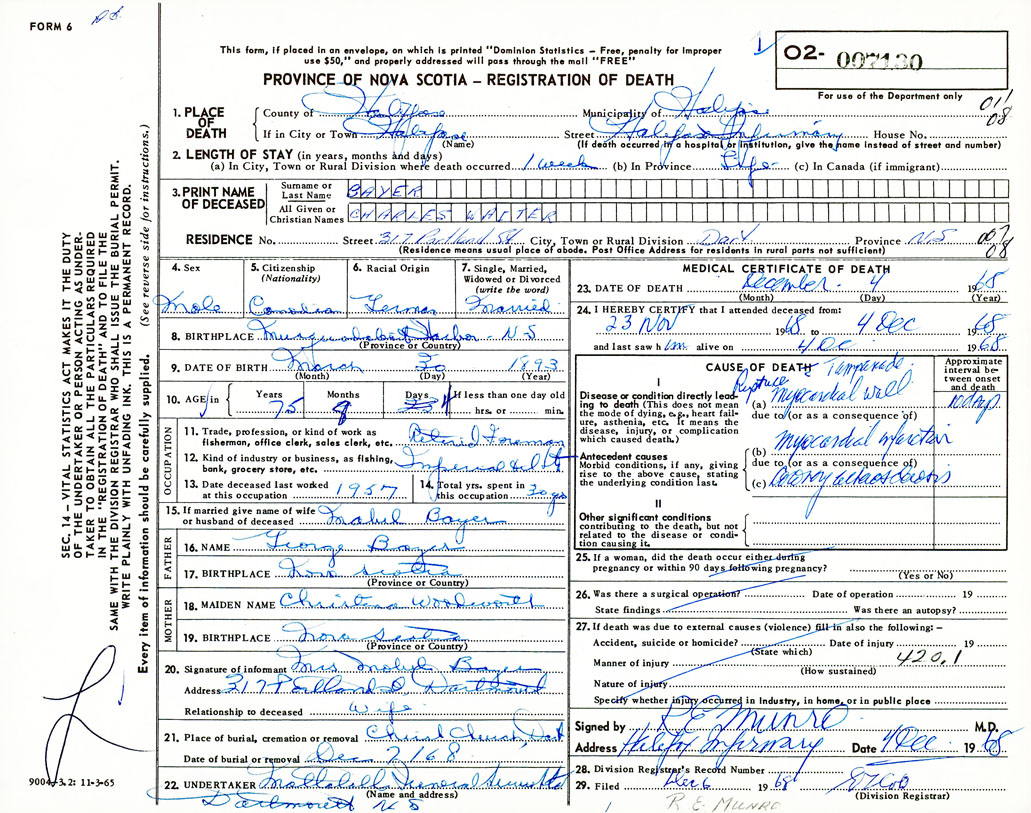 FORM 6
This form, if placed in an envelope, on which is printed "Dominion Statistics – Free, penalty for improper
use $50," and properly addressed will pass through the mail "FREE"
PROVINCE OF NOVA SCOTIA – REGISTRATION OF DEATH
02- 007130
For use of the Department only
011
08
1. PLACE OF DEATH
County of Halifax Municipality of Halifax
If in City or Town Halifax Street Halifax Infirmary House No.
(Name) (If death occurred in a hospital or institution, give the name instead of street and number)
2. LENGTH OF STAY (in years, months and days)
(a) In City, Town or Rural Division where death occurred 1 week (b) In Province Life (c) In Canada (if immigrant)
3. PRINT NAME OF DECEASED
Surname or Last Name BAYER
All Given or Christian Names CHARLES WALTER
RESIDENCE No. Street 317 Portland St City, Town or Rural Division Dart Province N.S
(Residence means usual place of abode. Post Office Address for residents in rural parts not sufficient)
007
08
4. Sex Male
5. Citizenship (Nationality) Canadian
6. Racial Origin German
7. Single, Married, Widowed or Divorced (write the word) Married
8. BIRTHPLACE Musquodoboit Harbor - N S
(Province or Country)
9. DATE OF BIRTH March 30 1893
(Month) (Day) (Year)
10. AGE in Years Months Days If less than one day old
75 8 4 hrs. or min.
OCCUPATION
11. Trade, profession, or kind of work as fisherman, office clerk, sales clerk, etc. Retired Foreman
12. Kind of industry or business, as fishing, bank, grocery store, etc. Imperial Oil Ltd
13. Date deceased last worked at this occupation 1957
14. Total yrs. spent in this occupation 30 yrs
15. If married give name of wife or husband of deceased Mabel Bayer
FATHER
16. NAME George Bayer
17. BIRTHPLACE Nova Scotia
(Province or Country)
MOTHER
18. MAIDEN NAME Christina Woodworth
19. BIRTHPLACE Nova Scotia
(Province or Country)
20. Signature of informant Mrs Mabel Bayer
Address 317 Portland St, Dartmouth
Relationship to deceased Wife
21. Place of burial, cremation or removal Christ Church, Dart
Date of burial or removal Dec 7/68
22. UNDERTAKER Funeral
(Name and address)
Dartmouth N S
MEDICAL CERTIFICATE OF DEATH
23. DATE OF DEATH December 4 1968
(Month) (Day) (Year)
24. I HEREBY CERTIFY that I attended deceased from:
23 Nov 1968 to 4 Dec 1968
and last saw him alive on 4 Dec 1968
CAUSE OF DEATH
Approximate interval between onset and death
I
Disease or condition directly leading to death (This does not mean the mode of dying, e.g., heart failure, asthenia, etc. It means the disease, injury, or complication which caused death.)
Tamponade
Rupture
(a) Myocardial wall 10 days
due to (or as a consequence of)
Antecedent causes
Morbid conditions, if any, giving rise to the above cause, stating the underlying condition last.
(b) Myocardial infarction
due to (or as a consequence of)
(c) Coronary
II
Other significant conditions contributing to the death, but not related to the disease or condition causing it.
25. If a woman, did the death occur either during pregnancy or within 90 days following pregnancy?
(Yes or No)
26. Was there a surgical operation? Date of operation 19
State findings Was there an autopsy?
27. If death was due to external causes (violence) fill in also the following: –
Accident, suicide or homicide? Date of injury 19
(State which)
Manner of injury 420.1
(How sustained)
Nature of injury
Specify whether injury occurred in Industry, in home, or in public place
Signed by R E Munro M.D.
Address Halifax Infirmary Date 4 Dec 1968
28. Division Registrar's Record Number
29. Filed Dec 6 1968
(Division Registrar)
R E MUNRO
SEC. 14 – VITAL STATISTICS ACT MAKES IT THE DUTY
OF THE UNDERTAKER OR PERSON ACTING AS UNDER-
TAKER TO OBTAIN ALL THE PARTICULARS REQUIRED
IN THE "REGISTRATION OF DEATH" AND TO FILE THE
SAME WITH THE DIVISION REGISTRAR WHO SHALL ISSUE THE BURIAL PERMIT.
WRITE PLAINLY WITH UNFADING INK. THIS IS A PERMANENT RECORD.
Every item of information should be carefully supplied. (See reverse side for instructions.)
9004-3.2: 11-3-65